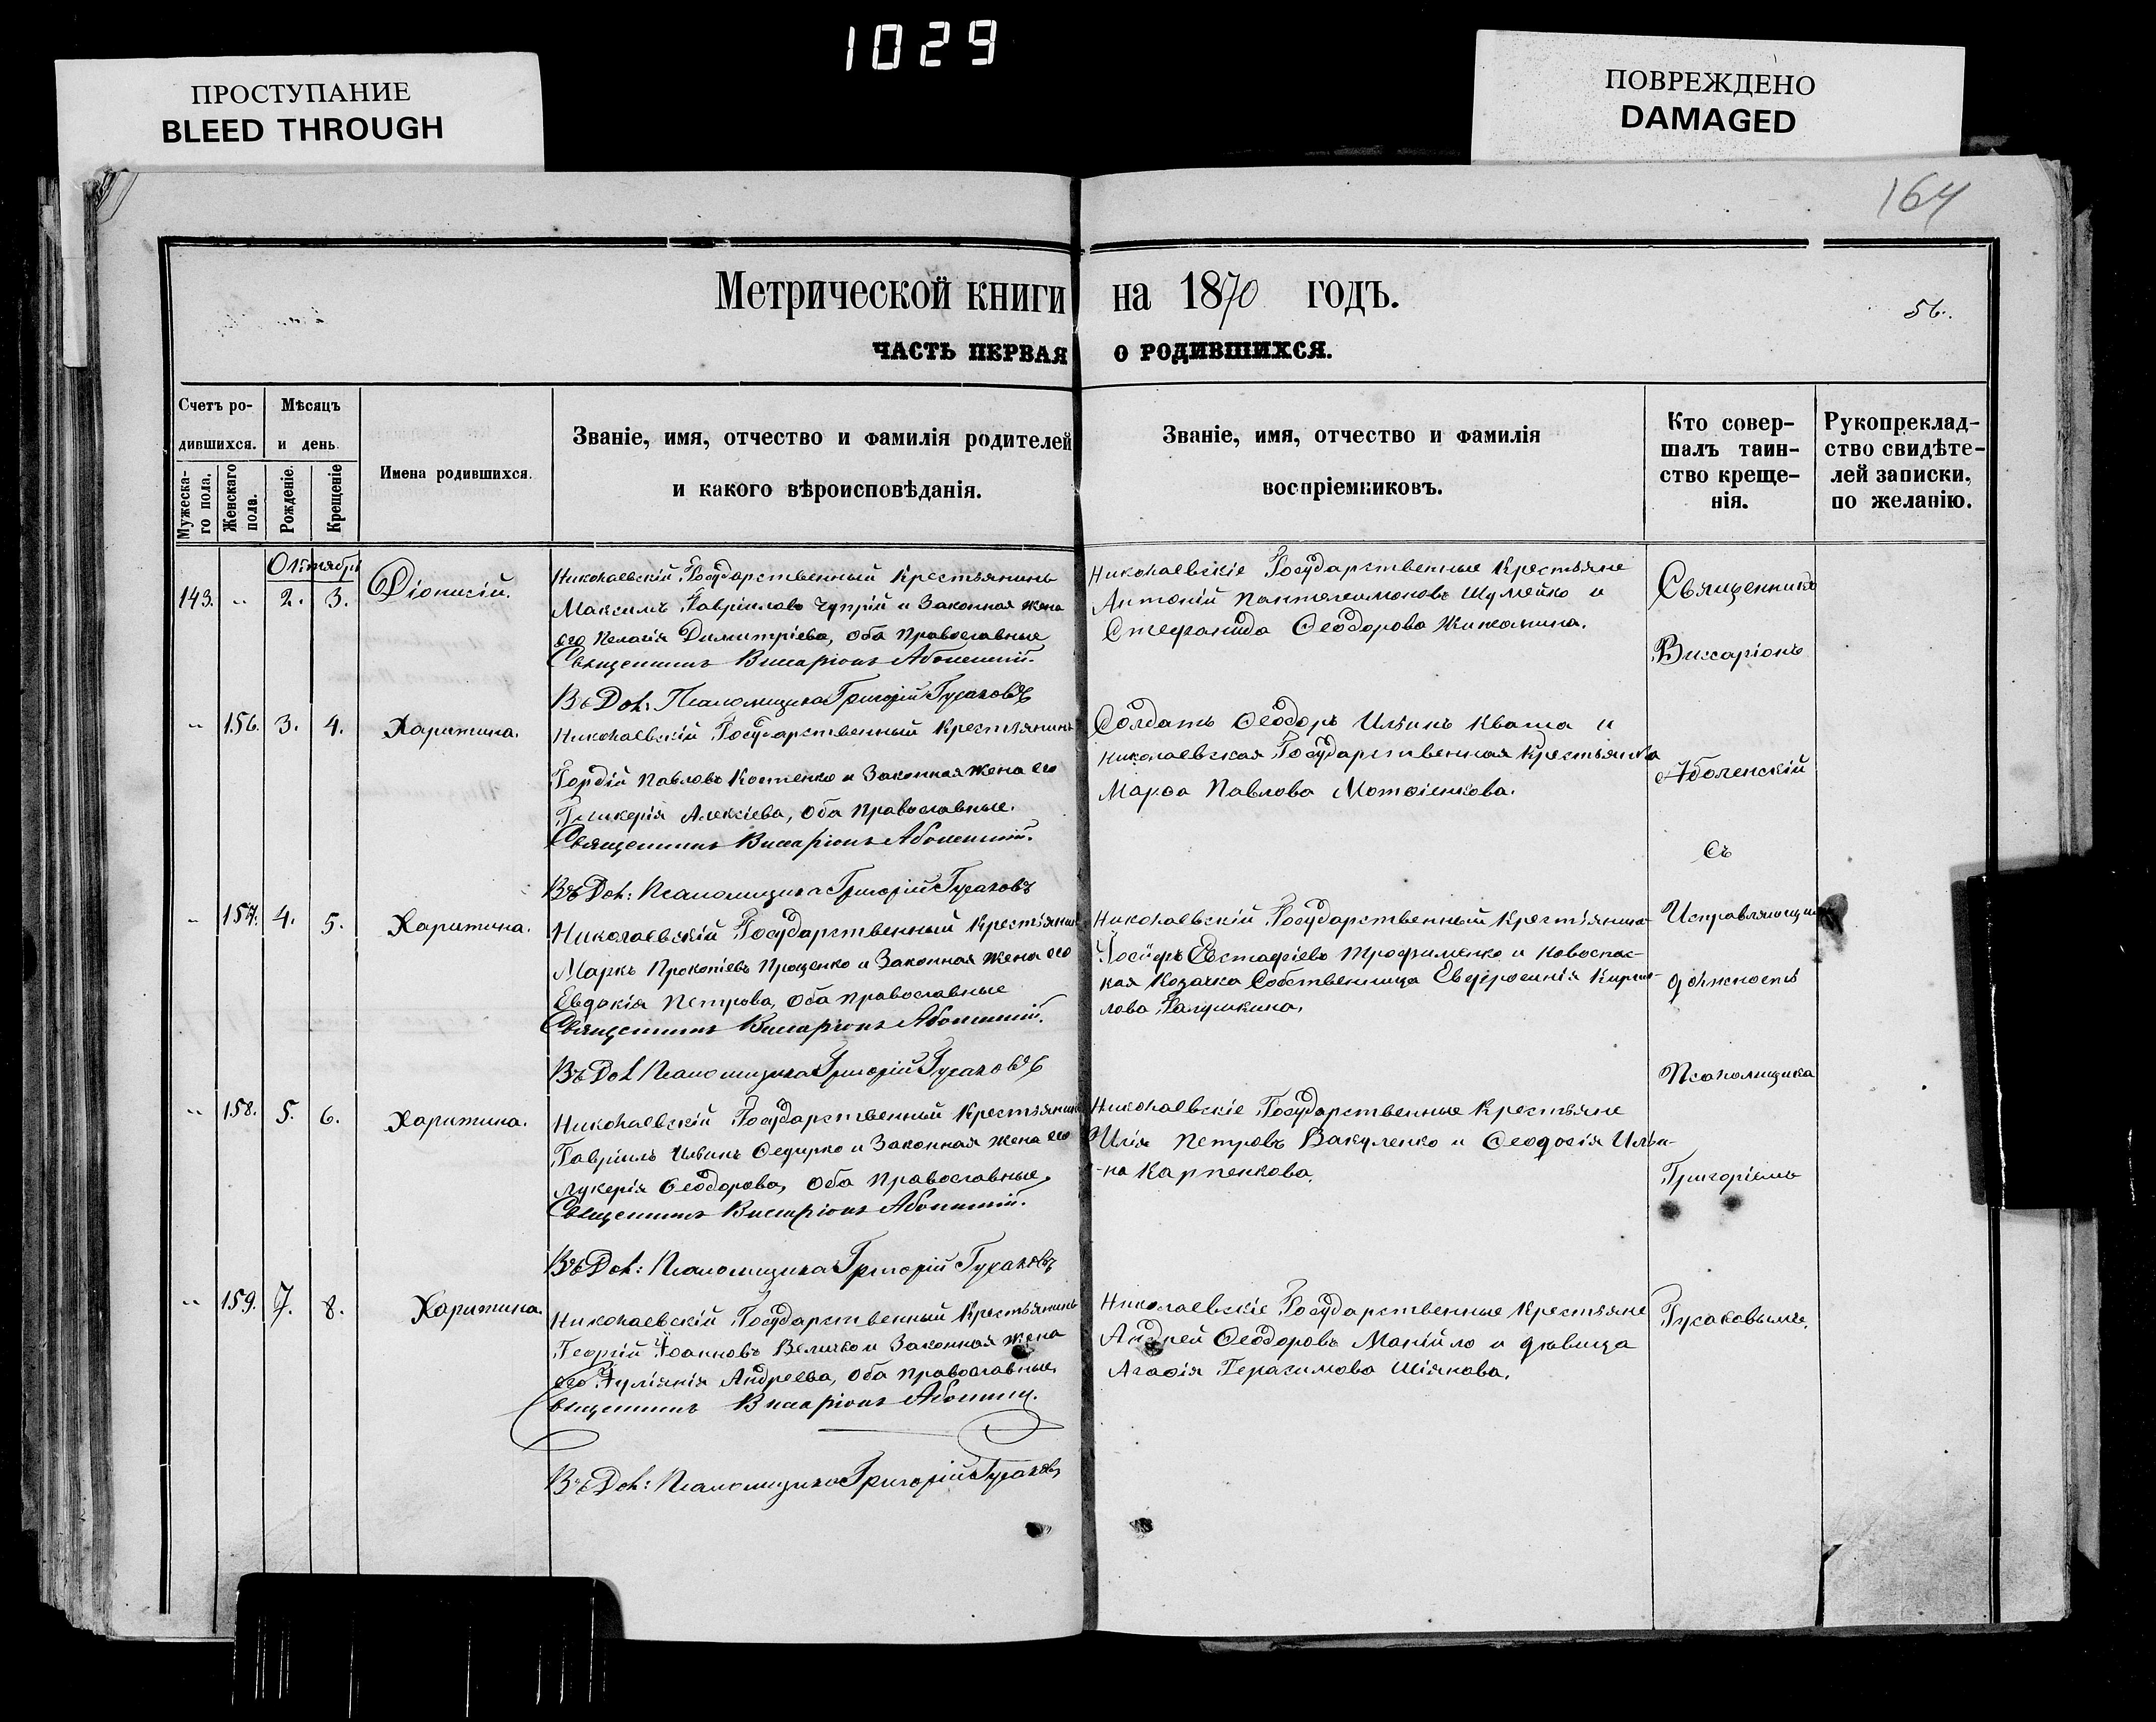 1029
ПРОСТУПАНИЕ
BLEED THROUGH
ПОВРЕЖДЕНО
DAMAGED
164
Метрической книги на 1870 годъ.
56.
ЧАСТЬ ПЕРВАЯ О РОДИВШИХСЯ.
Счетъ ро-
дившихся.
Мужеска-
го пола.
Женскаго
пола.
Мѣсяцъ
и день.
Рожденіе.
Крещеніе
Имена родившихся.
Званіе, имя, отчество и фамилія родителей
и какого вѣроисповѣданія.
Званіе, имя, отчество и фамилія
воспріемниковъ.
Кто совер-
шалъ таин-
ство креще-
нія.
Рукоприклад-
ство свидѣте-
лей записки,
по желанію.
Октябрь
143. " 2. 3. Діонисій.
Николаевскій Государственный Крестьянинъ
Максимъ Гавріиловъ Чупрій и Законная жена
его Пелагія Димитріева, оба православные
Священникъ Виссаріонъ Аболенскій.
Въ Дол: Псаломщика Григорій Гусаковъ
Николаевскіе Государственные Крестьяне
Антоній Пантелеимоновъ Шумейко и
Стефанида Ѳеодорова
" 156. 3. 4. Харитина.
Николаевскій Государственный Крестьянинъ
Гордій Павловъ Костенко и Законная жена его
Гликерія Алексіева, оба православные.
Священникъ Виссаріонъ Аболенскій.
Въ Дол: Псаломщика Григорій Гусаковъ
Солдатъ Ѳеодоръ Ильинъ Кваша и
Николаевская Государственная Крестьянка
Марѳа Павлова Мотѳіенкова.
" 157. 4. 5. Харитина.
Николаевскій Государственный Крестьянинъ
Маркъ Прокопіевъ Проценко и Законная жена его
Евдокія Петрова, оба православные
Священникъ Виссаріонъ Аболенскій.
Въ Дол Псаломщика Григорій Гусаковъ
Николаевскій Государственный Крестьянинъ
Іосифъ Евстафіевъ Трофименко и Новоспас-
кая Козачка Собственница Евфросинія Кирил-
лова Галушкина.
" 158. 5. 6. Харитина.
Николаевскій Государственный Крестьянинъ
Гавріилъ Ивинъ Федирко и Законная жена его
Лукерія Ѳеодорова, оба православные.
Священникъ Виссаріонъ Аболенскій.
Въ Дол: Псаломщика Григорій Гусаковъ
Николаевскіе Государственные Крестьяне
Илія Петровъ Вакуленко и Ѳеодосія Ильи-
-на Карпенкова.
" 159. 7. 8. Харитина.
Николаевскій Государственный Крестьянинъ
Георгій Іоанновъ Величко и Законная жена
его Іуліанія Андреева, оба православные
Священникъ Виссаріонъ Аболенскій.
Въ Дол: Псаломщика Григорій Гусаковъ
Николаевскіе Государственные Крестьяне
Андрей Ѳеодоровъ Манійло и дѣвица
Агафія Герасимова Шіянова.
Священникъ
Виссаріонъ
Аболенскій
съ
Исправляющимъ
должность
Псаломщика
Григоріемъ
Гусаковымъ.